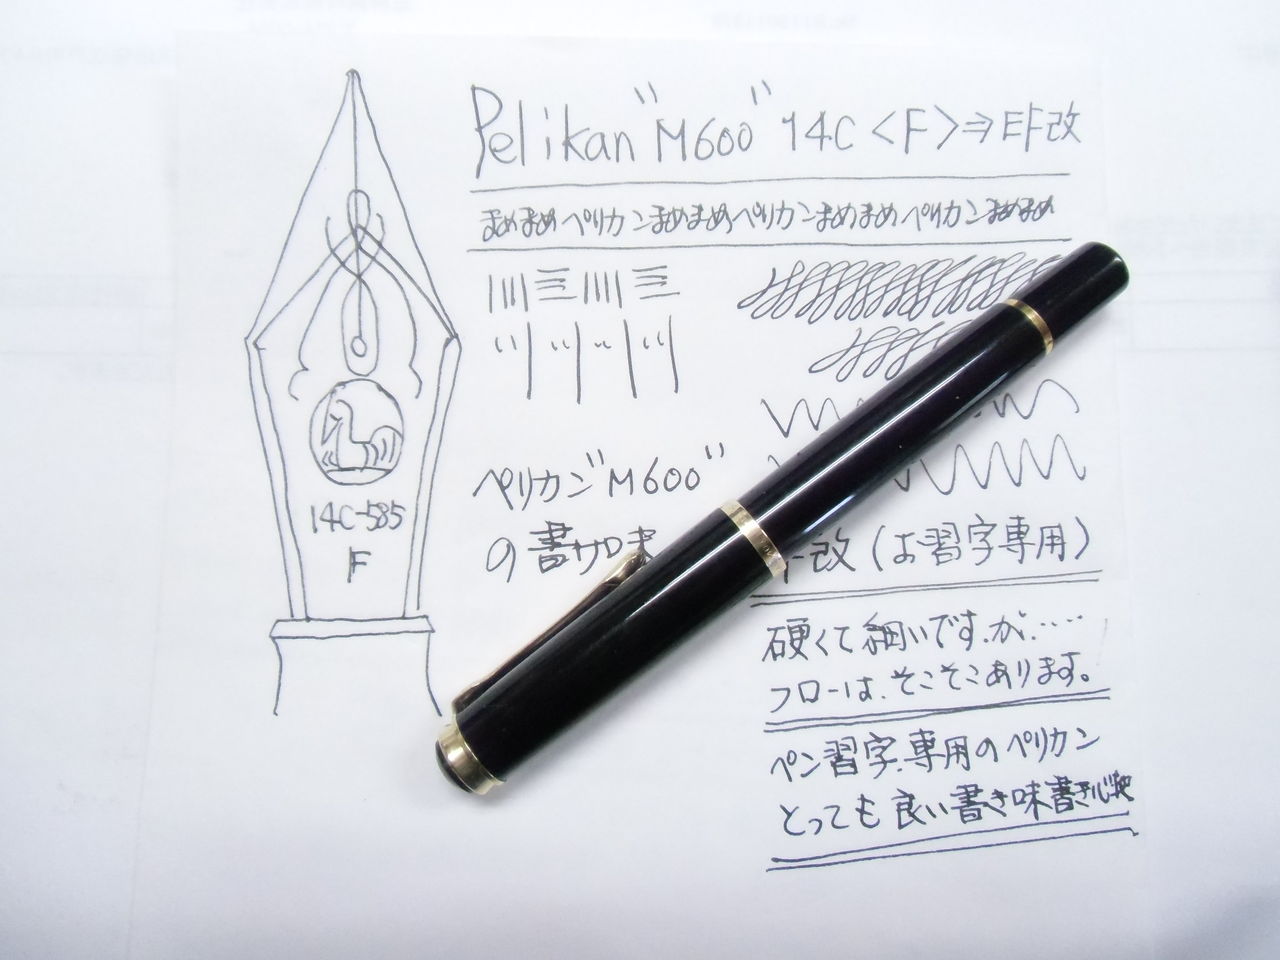 Pelikan "M600" 14C <F>⇒EF改
まめまめペリカンまめまめペリカンまめまめペリカンまめまめ
14C-585
F
ペリカン"M600"
の書サロ
改(お習字専用)
硬くて細いですが.....
フローは、そこそこあります。
ペン習字専用のペリカン
とっても良い書き味書き心地